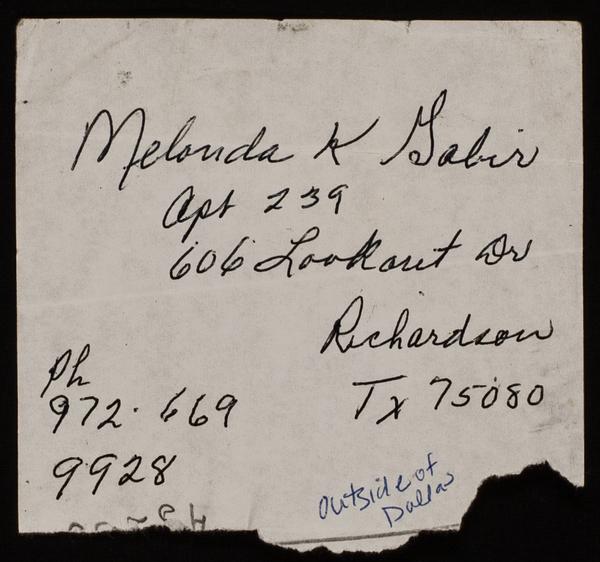 Melonda K Gabir
Apt 239
606 Lookout Dr
Richardson
Tx 75080
Ph
972. 669
9928
Outside of
Dallas